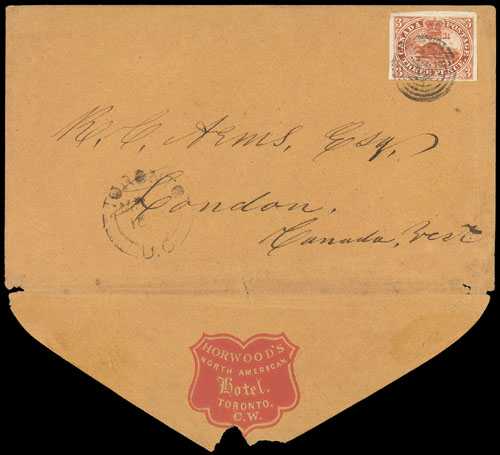 3 CANADA POSTAGE 3
3 THREE PENCE 3
R. C. Arms, Esq,
TORONTO
London,
U.C.
Canada, West
HORWOOD'S
NORTH AMERICAN
Hotel,
TORONTO,
C.W.